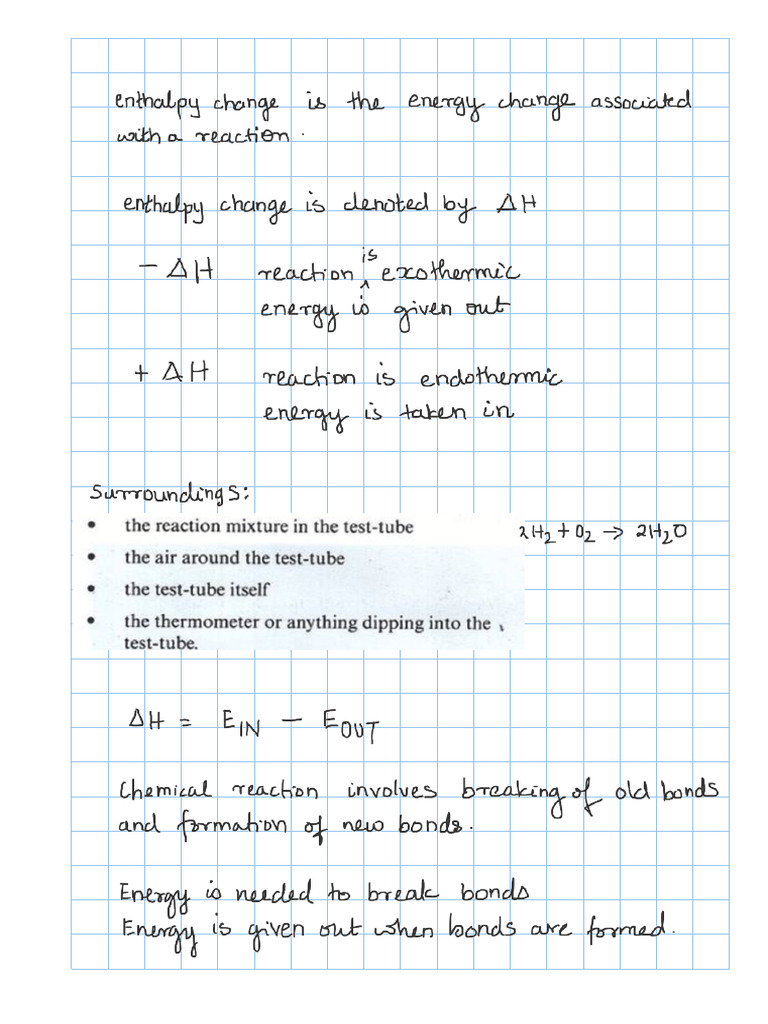 enthalpy change is the energy change associated
with a reaction.
enthalpy change is denoted by ΔH
- ΔH reaction is exothermic
energy is given out
+ ΔH reaction is endothermic
energy is taken in
Surroundings:
• the reaction mixture in the test-tube
2H₂ + O₂ → 2H₂O
• the air around the test-tube
• the test-tube itself
• the thermometer or anything dipping into the
test-tube.
ΔH = E_IN - E_OUT
Chemical reaction involves breaking of old bonds
and formation of new bonds.
Energy is needed to break bonds
Energy is given out when bonds are formed.